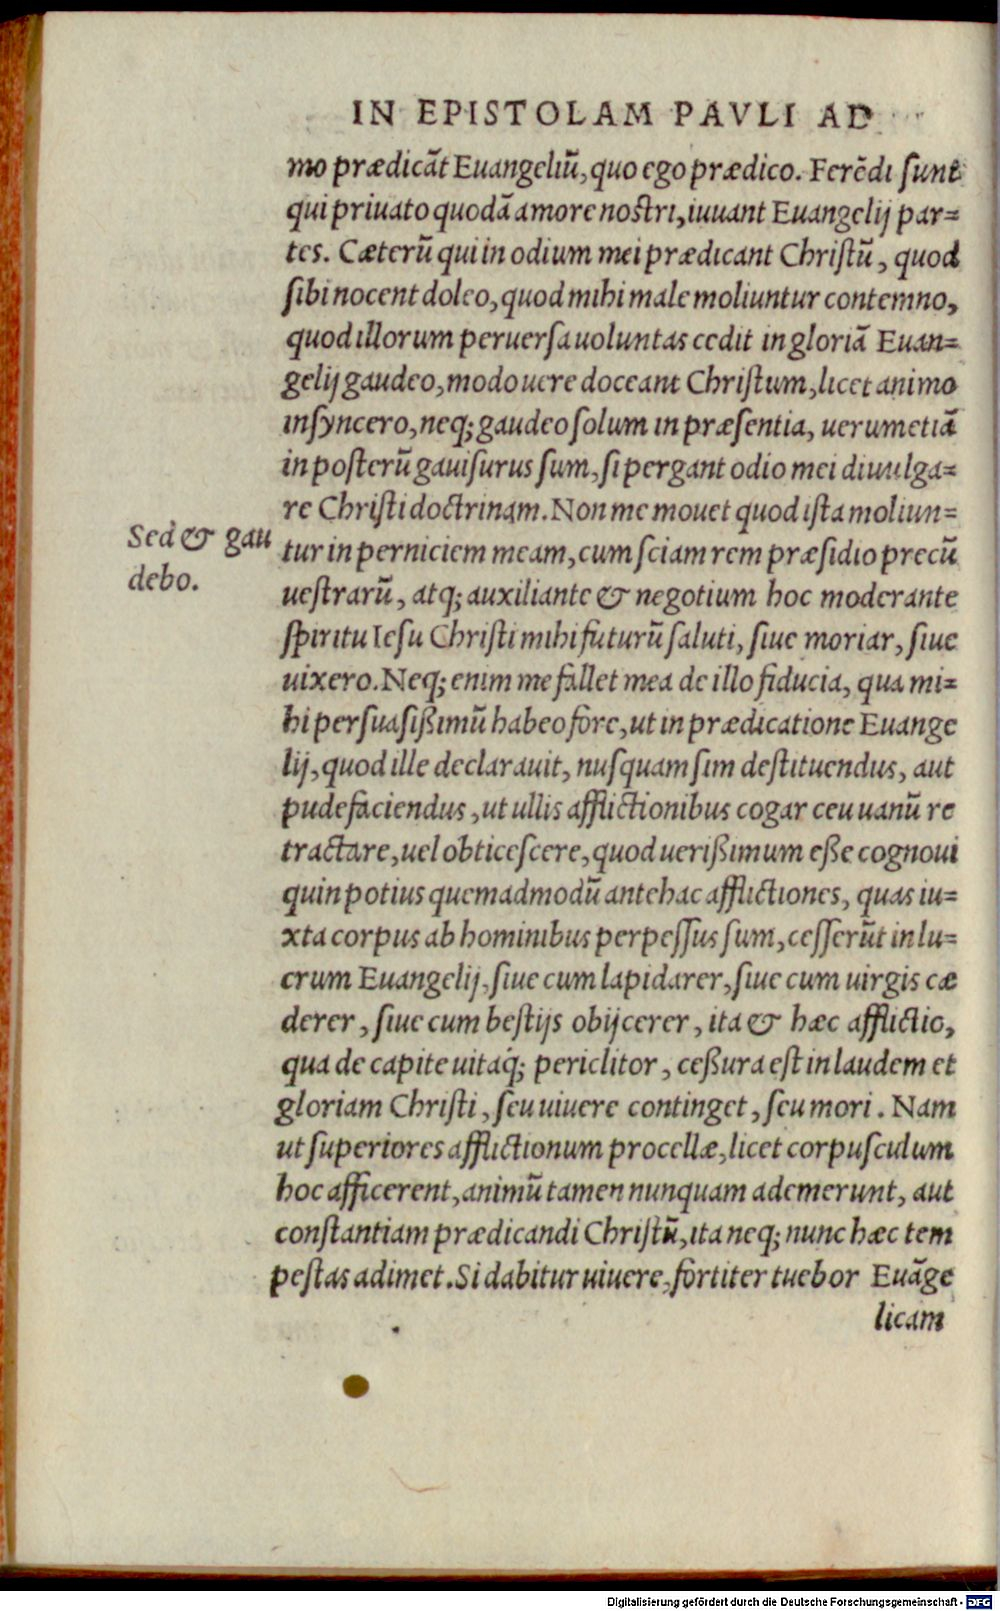 IN EPISTOLAM PAVLI AD
mo prædicāt Euangeliū, quo ego prædico. Ferēdi ſunt
qui priuato quodā amore noſtri, iuuant Euangelij par=
tes. Cæterū qui in odium mei prædicant Chriſtū, quod
ſibi nocent doleo, quod mihi male moliuntur contemno,
quod illorum peruerſa uoluntas cedit in gloriā Euan=
gelij gaudeo, modo uere doceant Chriſtum, licet animo
inſyncero, neq; gaudeo ſolum in præſentia, uerumetiā
in poſterū gauiſurus ſum, ſi pergant odio mei diuulga=
re Chriſti doctrinam. Non me mouet quod iſta moliun=
Sed & gau
debo.
tur in perniciem meam, cum ſciam rem præſidio precū
ueſtrarū, atq; auxiliante & negotium hoc moderante
ſpiritu Ieſu Chriſti mihi futurū ſaluti, ſiue moriar, ſiue
uixero. Neq; enim me fallet mea de illo fiducia, qua mi=
hi perſuaſißimū habeo fore, ut in prædicatione Euange
lij, quod ille declarauit, nuſquam ſim deſtituendus, aut
pudefaciendus, ut ullis afflictionibus cogar ceu uanū re
tractare, uel obticeſcere, quod uerißimum eße cognoui
quin potius quemadmodū antehac afflictiones, quas iu=
xta corpus ab hominibus perpeſſus ſum, ceſſerūt in lu=
crum Euangelij, ſiue cum lapidarer, ſiue cum uirgis cæ
derer, ſiue cum beſtijs obijcerer, ita & hæc afflictio,
qua de capite uitaq́; periclitor, ceßura eſt in laudem et
gloriam Chriſti, ſeu uiuere continget, ſeu mori. Nam
ut ſuperiores afflictionum procellæ, licet corpuſculum
hoc afficerent, animū tamen nunquam ademerunt, aut
conſtantiam prædicandi Chriſtū, ita neq; nunc hæc tem
peſtas adimet. Si dabitur uiuere, fortiter tuebor Euāge
licam
Digitalisierung gefördert durch die Deutsche Forschungsgemeinschaft - DFG